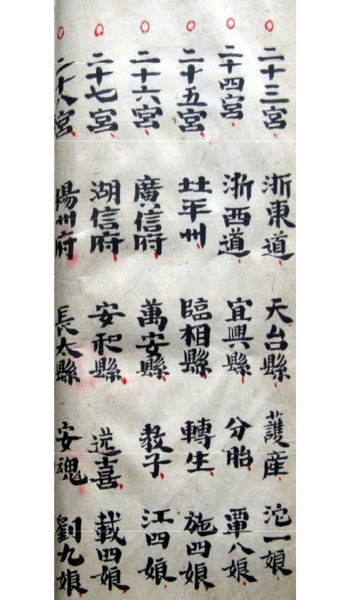 二十三宮 浙東道 天台縣 護産 沱一娘
二十四宮 浙西道 宜興縣 分胎 覃八娘
二十五宮 平州 臨相縣 轉生 施四娘
二十六宮 廣信府 萬安縣 教子 江四娘
二十七宮 湖信府 安和縣 送喜 載四娘
二十八宮 陽州府 長太縣 安魂 劉九娘